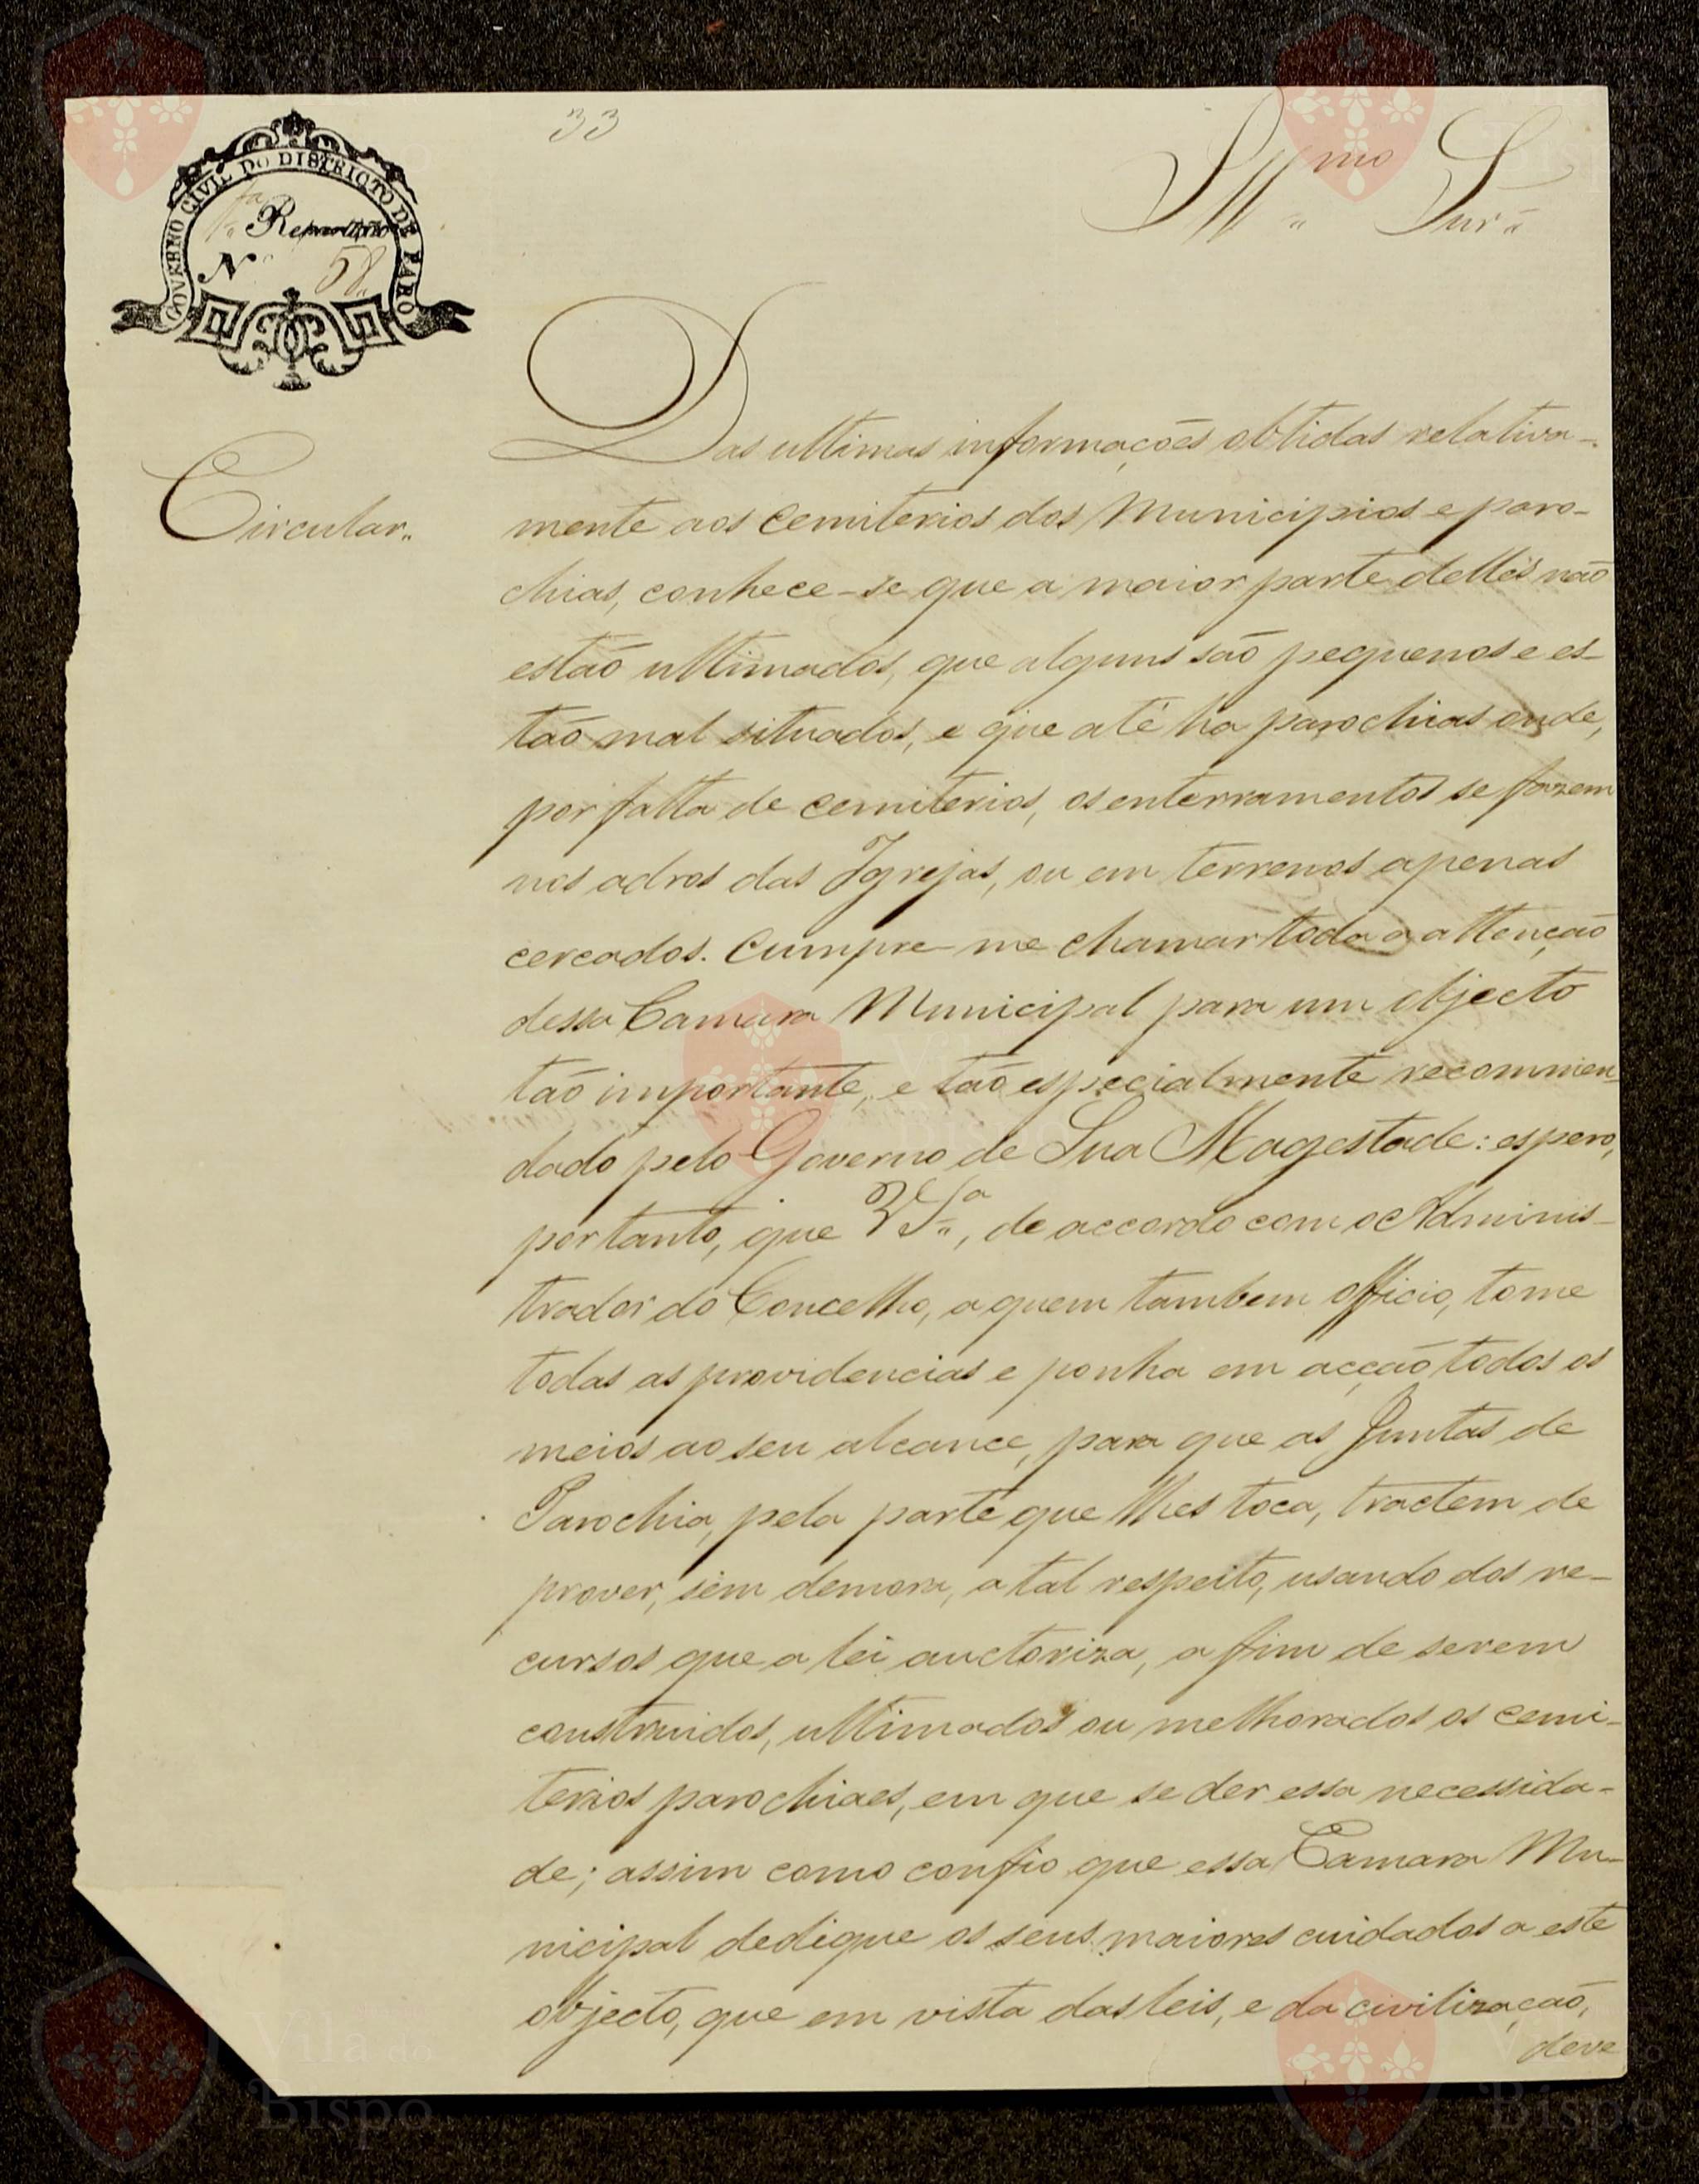 33
Ill.mo Snr.
GOVERNO CIVIL DO DISTRICTO DE FARO
1.a Repartição
N.º 58
Circular.
Das ultimas informações obtidas relativa-
mente aos cemiterios dos Municipios e paro-
chias, conhece-se que a maior parte delles não
estão ultimados, que alguns são pequenos e es-
tão mal situados, e que até ha parochias onde,
por falta de cemiterios, os enterramentos se fazem
nos adros das Igrejas, ou em terrenos apenas
cercados. Cumpre-me chamar toda a attenção
dessa Camara Municipal para um objecto
tão importante, e tão especialmente recommen-
dado pelo Governo de Sua Magestade: espero,
portanto, que V. S.a, de accordo com o Adminis-
trador do Concelho, a quem tambem officio, tome
todas as providencias e ponha em acção todos os
meios ao seu alcance, para que as Juntas de
Parochia, pela parte que lhes toca, tractem de
prover, sem demora, a tal respeito, usando dos re-
cursos que a lei auctoriza, a fim de serem
construidos, ultimados ou melhorados os cemi-
terios parochiaes, em que se der essa necessida-
de; assim como confio que essa Camara Mu-
nicipal dedique os seus maiores cuidados a este
objecto, que em vista das leis, e da civilização,
deve
Vila do
Bispo